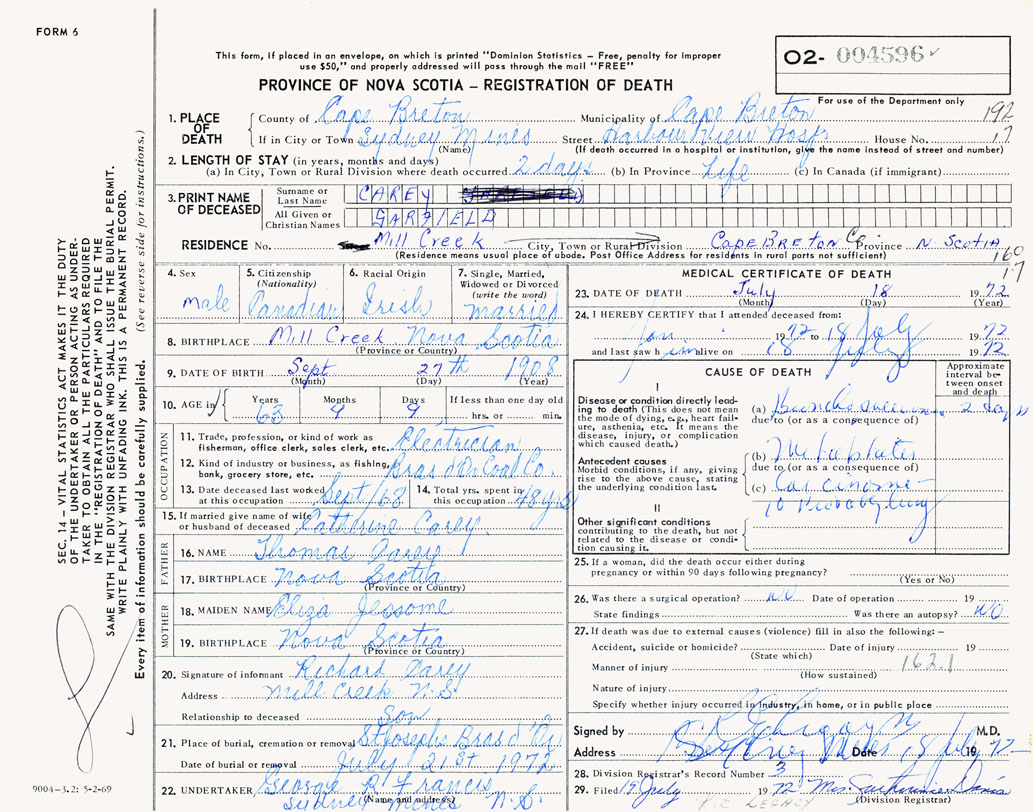 FORM 6
This form, if placed in an envelope, on which is printed "Dominion Statistics – Free, penalty for improper
use $50," and properly addressed will pass through the mail "FREE"
O2- 004596
PROVINCE OF NOVA SCOTIA – REGISTRATION OF DEATH
For use of the Department only
1. PLACE OF DEATH
County of Cape Breton Municipality of Cape Breton 192
If in City or Town Sydney Mines Street Harbour View Hosp House No. 17
(Name) (If death occurred in a hospital or institution, give the name instead of street and number)
2. LENGTH OF STAY (in years, months and days)
(a) In City, Town or Rural Division where death occurred 2 days (b) In Province Life (c) In Canada (if immigrant)
3. PRINT NAME OF DECEASED
Surname or Last Name CAREY
All Given or Christian Names GARFIELD
RESIDENCE No. Mill Creek City, Town or Rural Division CAPE BRETON Co. Province N. SCOTIA
(Residence means usual place of abode. Post Office Address for residents in rural parts not sufficient) 160
17
4. Sex male
5. Citizenship (Nationality) Canadian
6. Racial Origin Irish
7. Single, Married, Widowed or Divorced (write the word) married
8. BIRTHPLACE Mill Creek Nova Scotia
(Province or Country)
9. DATE OF BIRTH Sept 27th 1908
(Month) (Day) (Year)
10. AGE in Years 63 Months 9 Days 9 If less than one day old
hrs. or min.
OCCUPATION
11. Trade, profession, or kind of work as fisherman, office clerk, sales clerk, etc. Electrician
12. Kind of industry or business, as fishing, bank, grocery store, etc. Bras d'Or Coal Co.
13. Date deceased last worked at this occupation Sept/68
14. Total yrs. spent in this occupation 48 yrs
15. If married give name of wife or husband of deceased Catherine Carey
FATHER
16. NAME Thomas Carey
17. BIRTHPLACE Nova Scotia
(Province or Country)
MOTHER
18. MAIDEN NAME Eliza Jessome
19. BIRTHPLACE Nova Scotia
(Province or Country)
20. Signature of informant Richard Carey
Address Mill Creek N.S
Relationship to deceased Son
21. Place of burial, cremation or removal St Josephs Bras d'Or
Date of burial or removal July 21st 1972
22. UNDERTAKER George R Francis
Sydney Mines N.S.
(Name and address)
MEDICAL CERTIFICATE OF DEATH
23. DATE OF DEATH July 18 1972
(Month) (Day) (Year)
24. I HEREBY CERTIFY that I attended deceased from:
Jan 1972 to 18 July 1972
and last saw him alive on 18 July 1972
CAUSE OF DEATH
Approximate interval between onset and death
I
Disease or condition directly leading to death (This does not mean the mode of dying, e.g., heart failure, asthenia, etc. It means the disease, injury, or complication which caused death.)
(a) 2 days
due to (or as a consequence of)
Antecedent causes
Morbid conditions, if any, giving rise to the above cause, stating the underlying condition last.
(b)
due to (or as a consequence of)
(c) Carcinoma
Probably lung
II
Other significant conditions contributing to the death, but not related to the disease or condition causing it.
25. If a woman, did the death occur either during pregnancy or within 90 days following pregnancy?
(Yes or No)
26. Was there a surgical operation? NO Date of operation 19
State findings Was there an autopsy? NO
27. If death was due to external causes (violence) fill in also the following: –
Accident, suicide or homicide? Date of injury 19
(State which)
Manner of injury 162.1
(How sustained)
Nature of injury
Specify whether injury occurred in industry, in home, or in public place
Signed by M.D.
Address Sydney Mines Date 18 July 1972
28. Division Registrar's Record Number 3
29. Filed 19 July 1972 Mrs. Davis
(Division Registrar)
SEC. 14 – VITAL STATISTICS ACT MAKES IT THE DUTY
OF THE UNDERTAKER OR PERSON ACTING AS UNDER-
TAKER TO OBTAIN ALL THE PARTICULARS REQUIRED
IN THE "REGISTRATION OF DEATH" AND TO FILE THE
SAME WITH THE DIVISION REGISTRAR WHO SHALL ISSUE THE BURIAL PERMIT.
WRITE PLAINLY WITH UNFADING INK. THIS IS A PERMANENT RECORD.
Every item of information should be carefully supplied. (See reverse side for instructions.)
9004-3.2: 5-2-69